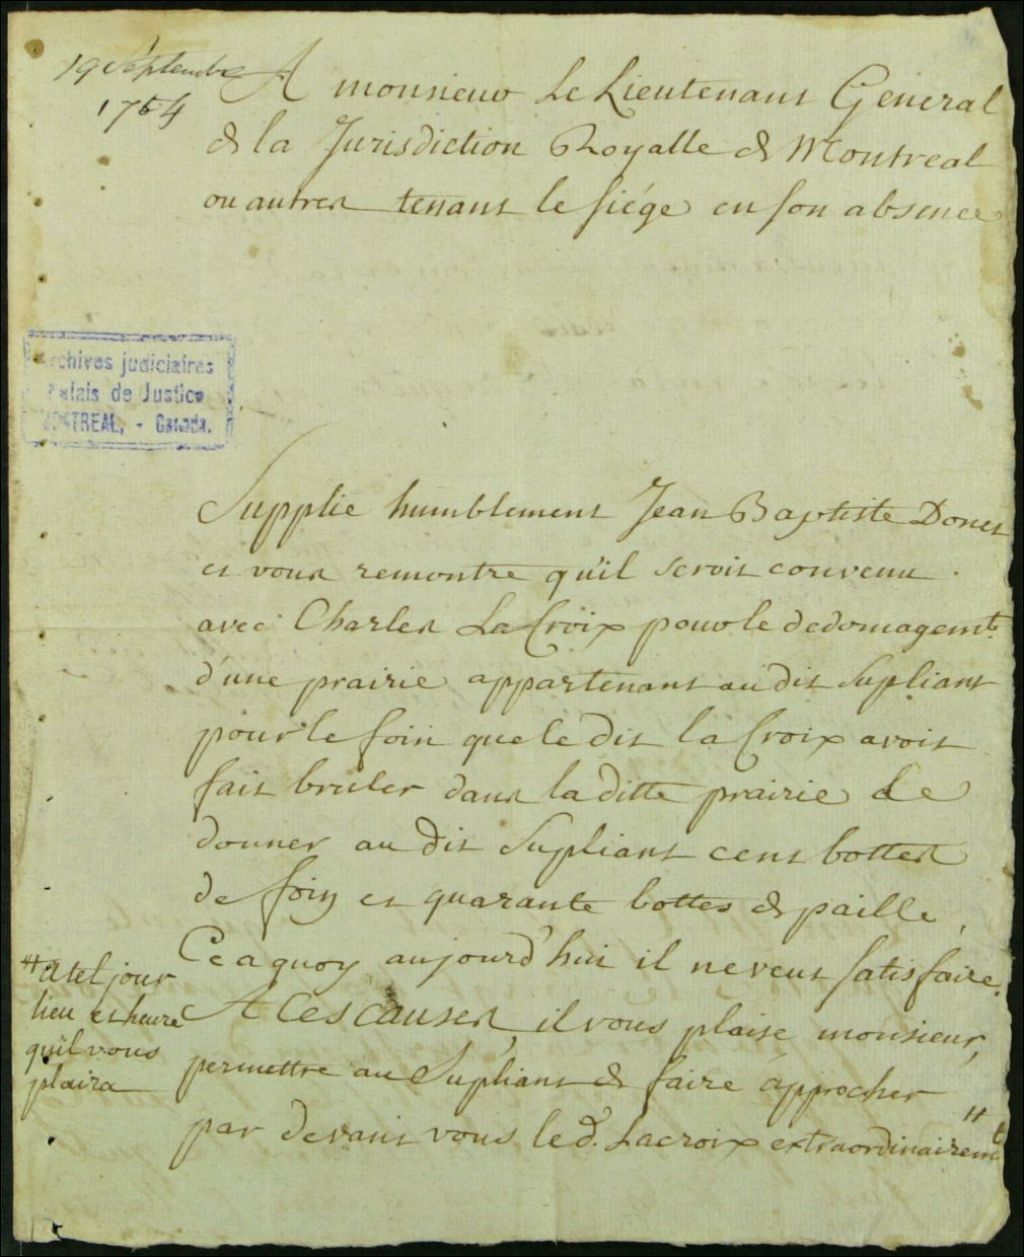 19 Septembre
1754
A monsieur Le Lieutenant General
de la Jurisdiction Royalle de Montreal
ou autres tenant le siége en son absence
Archives judiciaires
Palais de Justice
MONTREAL, - Canada.
Supplie humblement Jean Baptiste Donet
et vous remontre qu'il seroit convenu
avec Charles La Croix pour le dedomagemt.
d'une prairie appartenant au dit Supliant
pour le foin que le dit la Croix avoit
fait bruler dans la ditte prairie de
donner au dit Supliant cent bottes
de foin et quarante bottes de paille,
Ce a quoy aujourd'hui il ne veut satisfaire.
A Ces causes, il vous plaise monsieur,
permettre au Supliant de faire approcher
par devant vous le d. Lacroix extraordinairemt "
" a tel jour
lieu et heure
qu'il vous
plaira